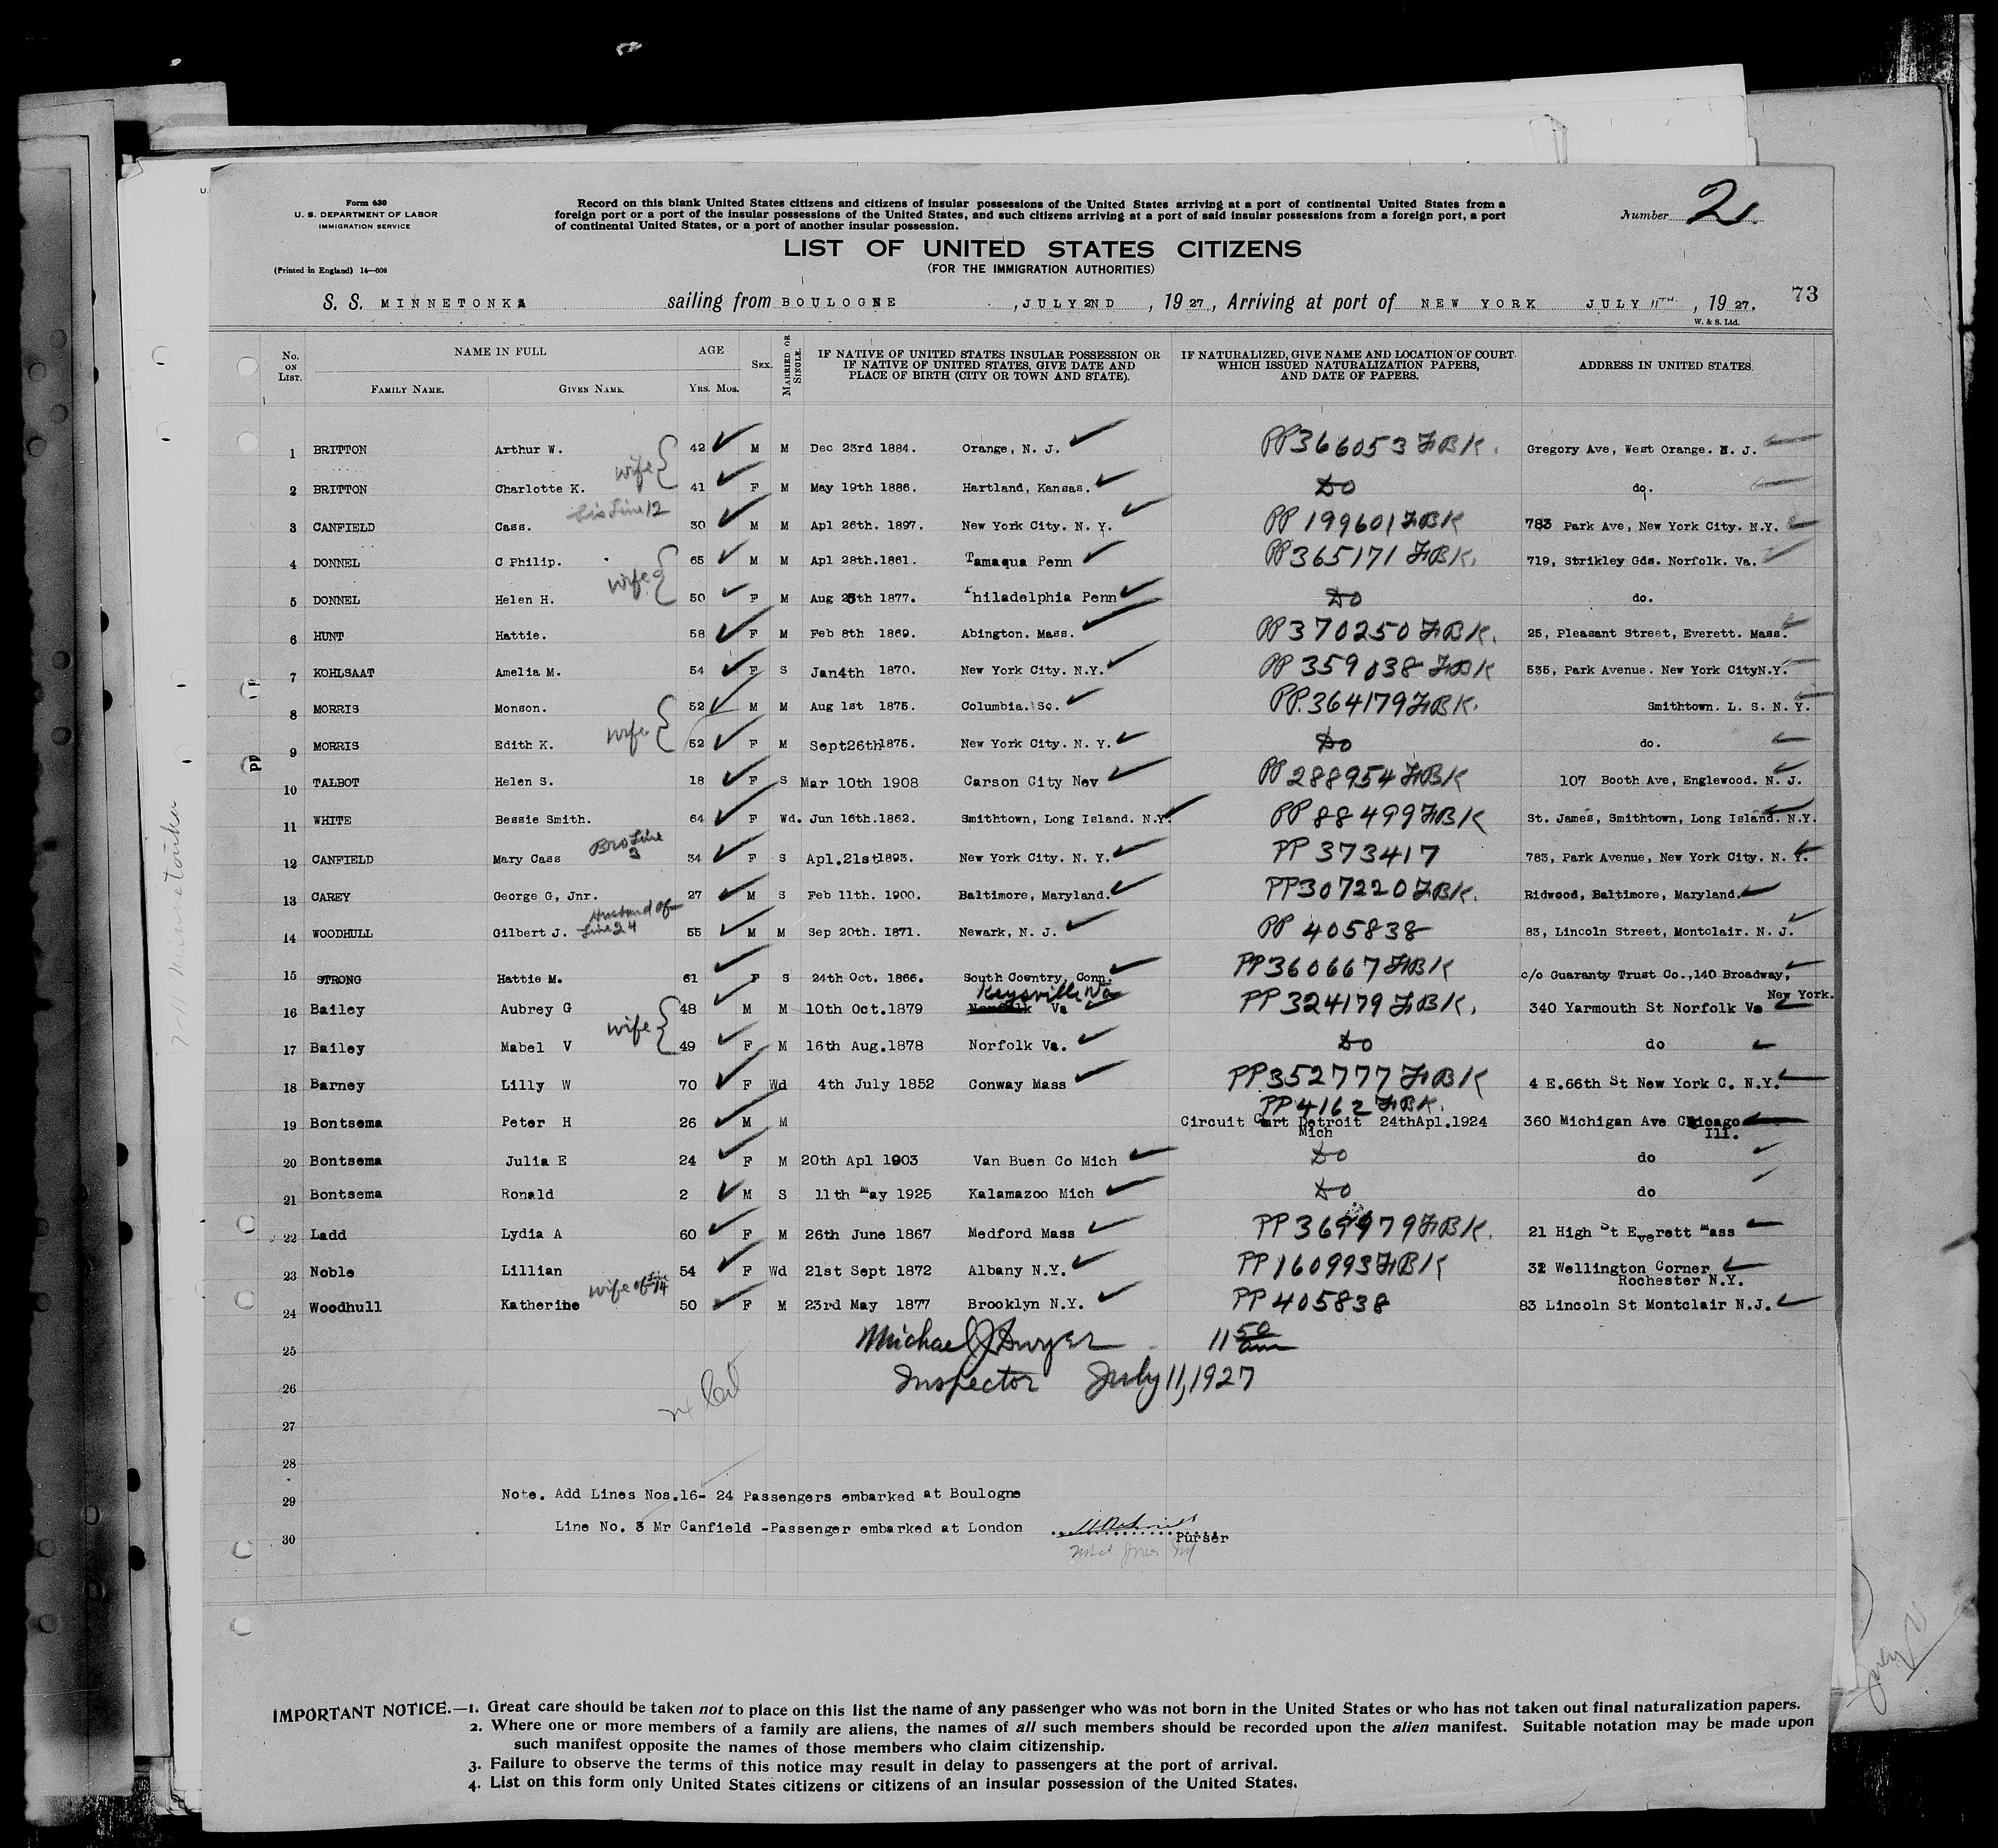 Form 630
U. S. DEPARTMENT OF LABOR
IMMIGRATION SERVICE
(Printed in England) 14—608
Record on this blank United States citizens and citizens of insular possessions of the United States arriving at a port of continental United States from a
foreign port or a port of the insular possessions of the United States, and such citizens arriving at a port of said insular possessions from a foreign port, a port
of continental United States, or a port of another insular possession.
Number 2
LIST OF UNITED STATES CITIZENS
(FOR THE IMMIGRATION AUTHORITIES)
S. S. MINNETONKA sailing from BOULOGNE , JULY 2ND , 19 27 , Arriving at port of NEW YORK JULY 11TH , 19 27. 73
W. & S. Ltd.
No. ON LIST. NAME IN FULL AGE SEX. MARRIED OR SINGLE. IF NATIVE OF UNITED STATES INSULAR POSSESSION OR IF NATIVE OF UNITED STATES, GIVE DATE AND PLACE OF BIRTH (CITY OR TOWN AND STATE). IF NATURALIZED, GIVE NAME AND LOCATION OF COURT WHICH ISSUED NATURALIZATION PAPERS, AND DATE OF PAPERS. ADDRESS IN UNITED STATES.
FAMILY NAME. GIVEN NAME. YRS. MOS.
1 BRITTON Arthur W. 42 M M Dec 23rd 1884. Orange, N. J. PP366053 FBK. Gregory Ave, West Orange. N. J.
wife
2 BRITTON Charlotte K. 41 F M May 19th 1886. Hartland, Kansas. Do do.
Sis Line 12
3 CANFIELD Cass. 30 M M Apl 26th. 1897. New York City. N. Y. PP 199601 FBK 783 Park Ave, New York City. N.Y.
4 DONNEL C Philip. 65 M M Apl 28th.1861. Tamaqua Penn PP365171 FBK. 719, Strikley Gds. Norfolk. Va.
wife
5 DONNEL Helen H. 50 F M Aug 25th 1877. Philadelphia Penn Do do.
6 HUNT Hattie. 58 F M Feb 8th 1869. Abington. Mass. PP370250 FBK. 25, Pleasant Street, Everett. Mass.
7 KOHLSAAT Amelia M. 54 F S Jan4th 1870. New York City. N.Y. PP 359038 FBK 535, Park Avenue. New York CityN.Y.
8 MORRIS Monson. 52 M M Aug 1st 1875. Columbia. So. PP.364179 FBK. Smithtown. L. S. N. Y.
wife
9 MORRIS Edith K. 52 F M Sept26th1875. New York City. N. Y. Do do.
10 TALBOT Helen S. 18 F S Mar 10th 1908 Carson City Nev PP288954 FBK 107 Booth Ave, Englewood. N. J.
11 WHITE Bessie Smith. 64 F Wd. Jun 16th.1862. Smithtown, Long Island. N.Y. PP 88499 FBK St. James, Smithtown, Long Island. N.Y.
Bro Line 3
12 CANFIELD Mary Cass 34 F S Apl.21st1893. New York City. N. Y. PP 373417 783, Park Avenue, New York City. N. Y.
13 CAREY George G, Jnr. 27 M S Feb 11th. 1900. Baltimore, Maryland. PP307220 FBK. Ridwood, Baltimore, Maryland.
Husband of Line 24
14 WOODHULL Gilbert J. 55 M M Sep 20th. 1871. Newark, N. J. PP 405838 83, Lincoln Street, Montclair. N. J.
15 STRONG Hattie M. 61 F S 24th Oct. 1866. South Coentry, Conn. PP360667 FBK c/o Guaranty Trust Co.,140 Broadway, New York.
Keysville Va
16 Bailey Aubrey G 48 M M 10th Oct.1879 Norfolk Va PP324179 FBK. 340 Yarmouth St Norfolk Va
wife
17 Bailey Mabel V 49 F M 16th Aug.1878 Norfolk Va. Do do
18 Barney Lilly W 70 F Wd 4th July 1852 Conway Mass PP352777 FBK 4 E.66th St New York C. N.Y.
PP4162 FBK.
19 Bontsema Peter H 26 M M Circuit Curt Detroit Mich 24thApl.1924 360 Michigan Ave Chicago Ill.
20 Bontsema Julia E 24 F M 20th Apl 1903 Van Buen Co Mich Do do
21 Bontsema Ronald 2 M S 11th May 1925 Kalamazoo Mich Do do
22 Ladd Lydia A 60 F M 26th June 1867 Medford Mass PP369979 FBK. 21 High St Everett Mass
23 Noble Lillian 54 F Wd 21st Sept 1872 Albany N.Y. PP160993 FBK 32 Wellington Corner Rochester N.Y.
wife of Line 14
24 Woodhull Katherine 50 F M 23rd May 1877 Brooklyn N.Y. PP405838 83 Lincoln St Montclair N.J.
25 Michael J Dwyer 11 50 am
26 Inspector July 11, 1927
27
28
29 Note. Add Lines Nos.16- 24 Passengers embarked at Boulogne
Line No. 3 Mr Canfield -Passenger embarked at London
30 Purser
IMPORTANT NOTICE.—1. Great care should be taken not to place on this list the name of any passenger who was not born in the United States or who has not taken out final naturalization papers.
2. Where one or more members of a family are aliens, the names of all such members should be recorded upon the alien manifest. Suitable notation may be made upon
such manifest opposite the names of those members who claim citizenship.
3. Failure to observe the terms of this notice may result in delay to passengers at the port of arrival.
4. List on this form only United States citizens or citizens of an insular possession of the United States.
7-11 Minnetonka